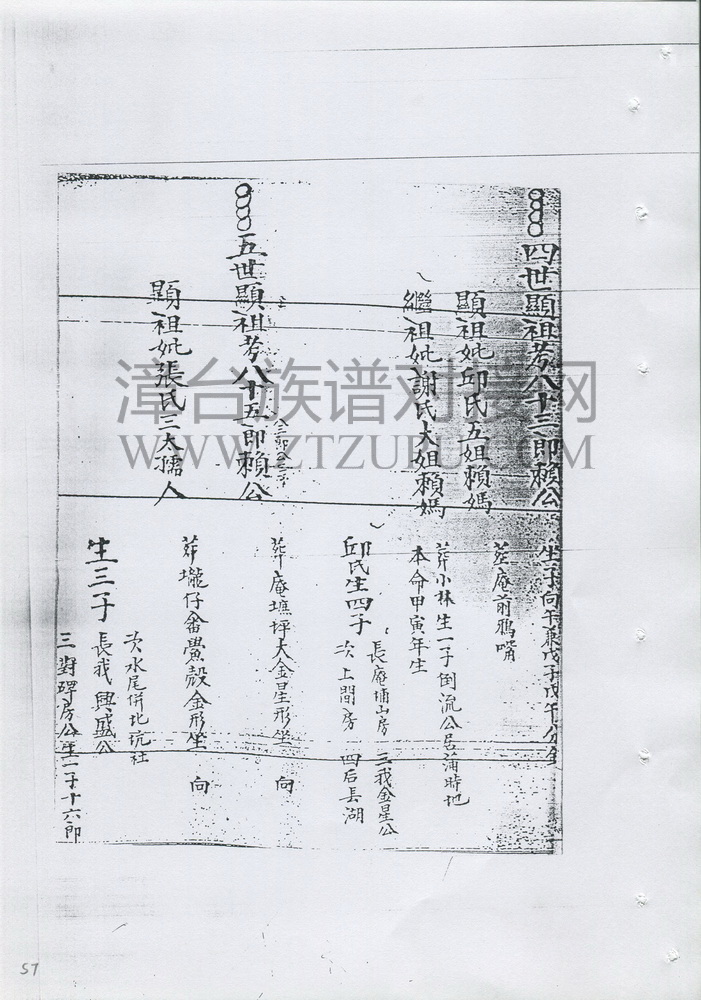 四世顯祖考八十三郎賴公
坐子向午兼戊子戊午分金
顯祖妣邱氏五姐賴媽
塟庵前鴉嘴
繼祖妣謝氏大姐賴媽
葬小林生一子倒流公居浦時地
本命甲寅年生
邱氏生四子
長庵埔山房 三我金星公
次上間房 四后長湖
五世顯祖考八十五郎賴公
葬庵坪大金星形坐 向
顯祖妣張氏三大孺人
葬壠仔畬鱟殼金形坐 向
生三子
長我興盛公
次水尾併北坑社
三對碑房公生一子十六郎
漳台族谱对接网
WWW.ZTZUPU.COM
57